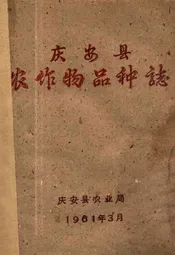 庆安县
农作物品种誌
庆安县农业局
1981年3月